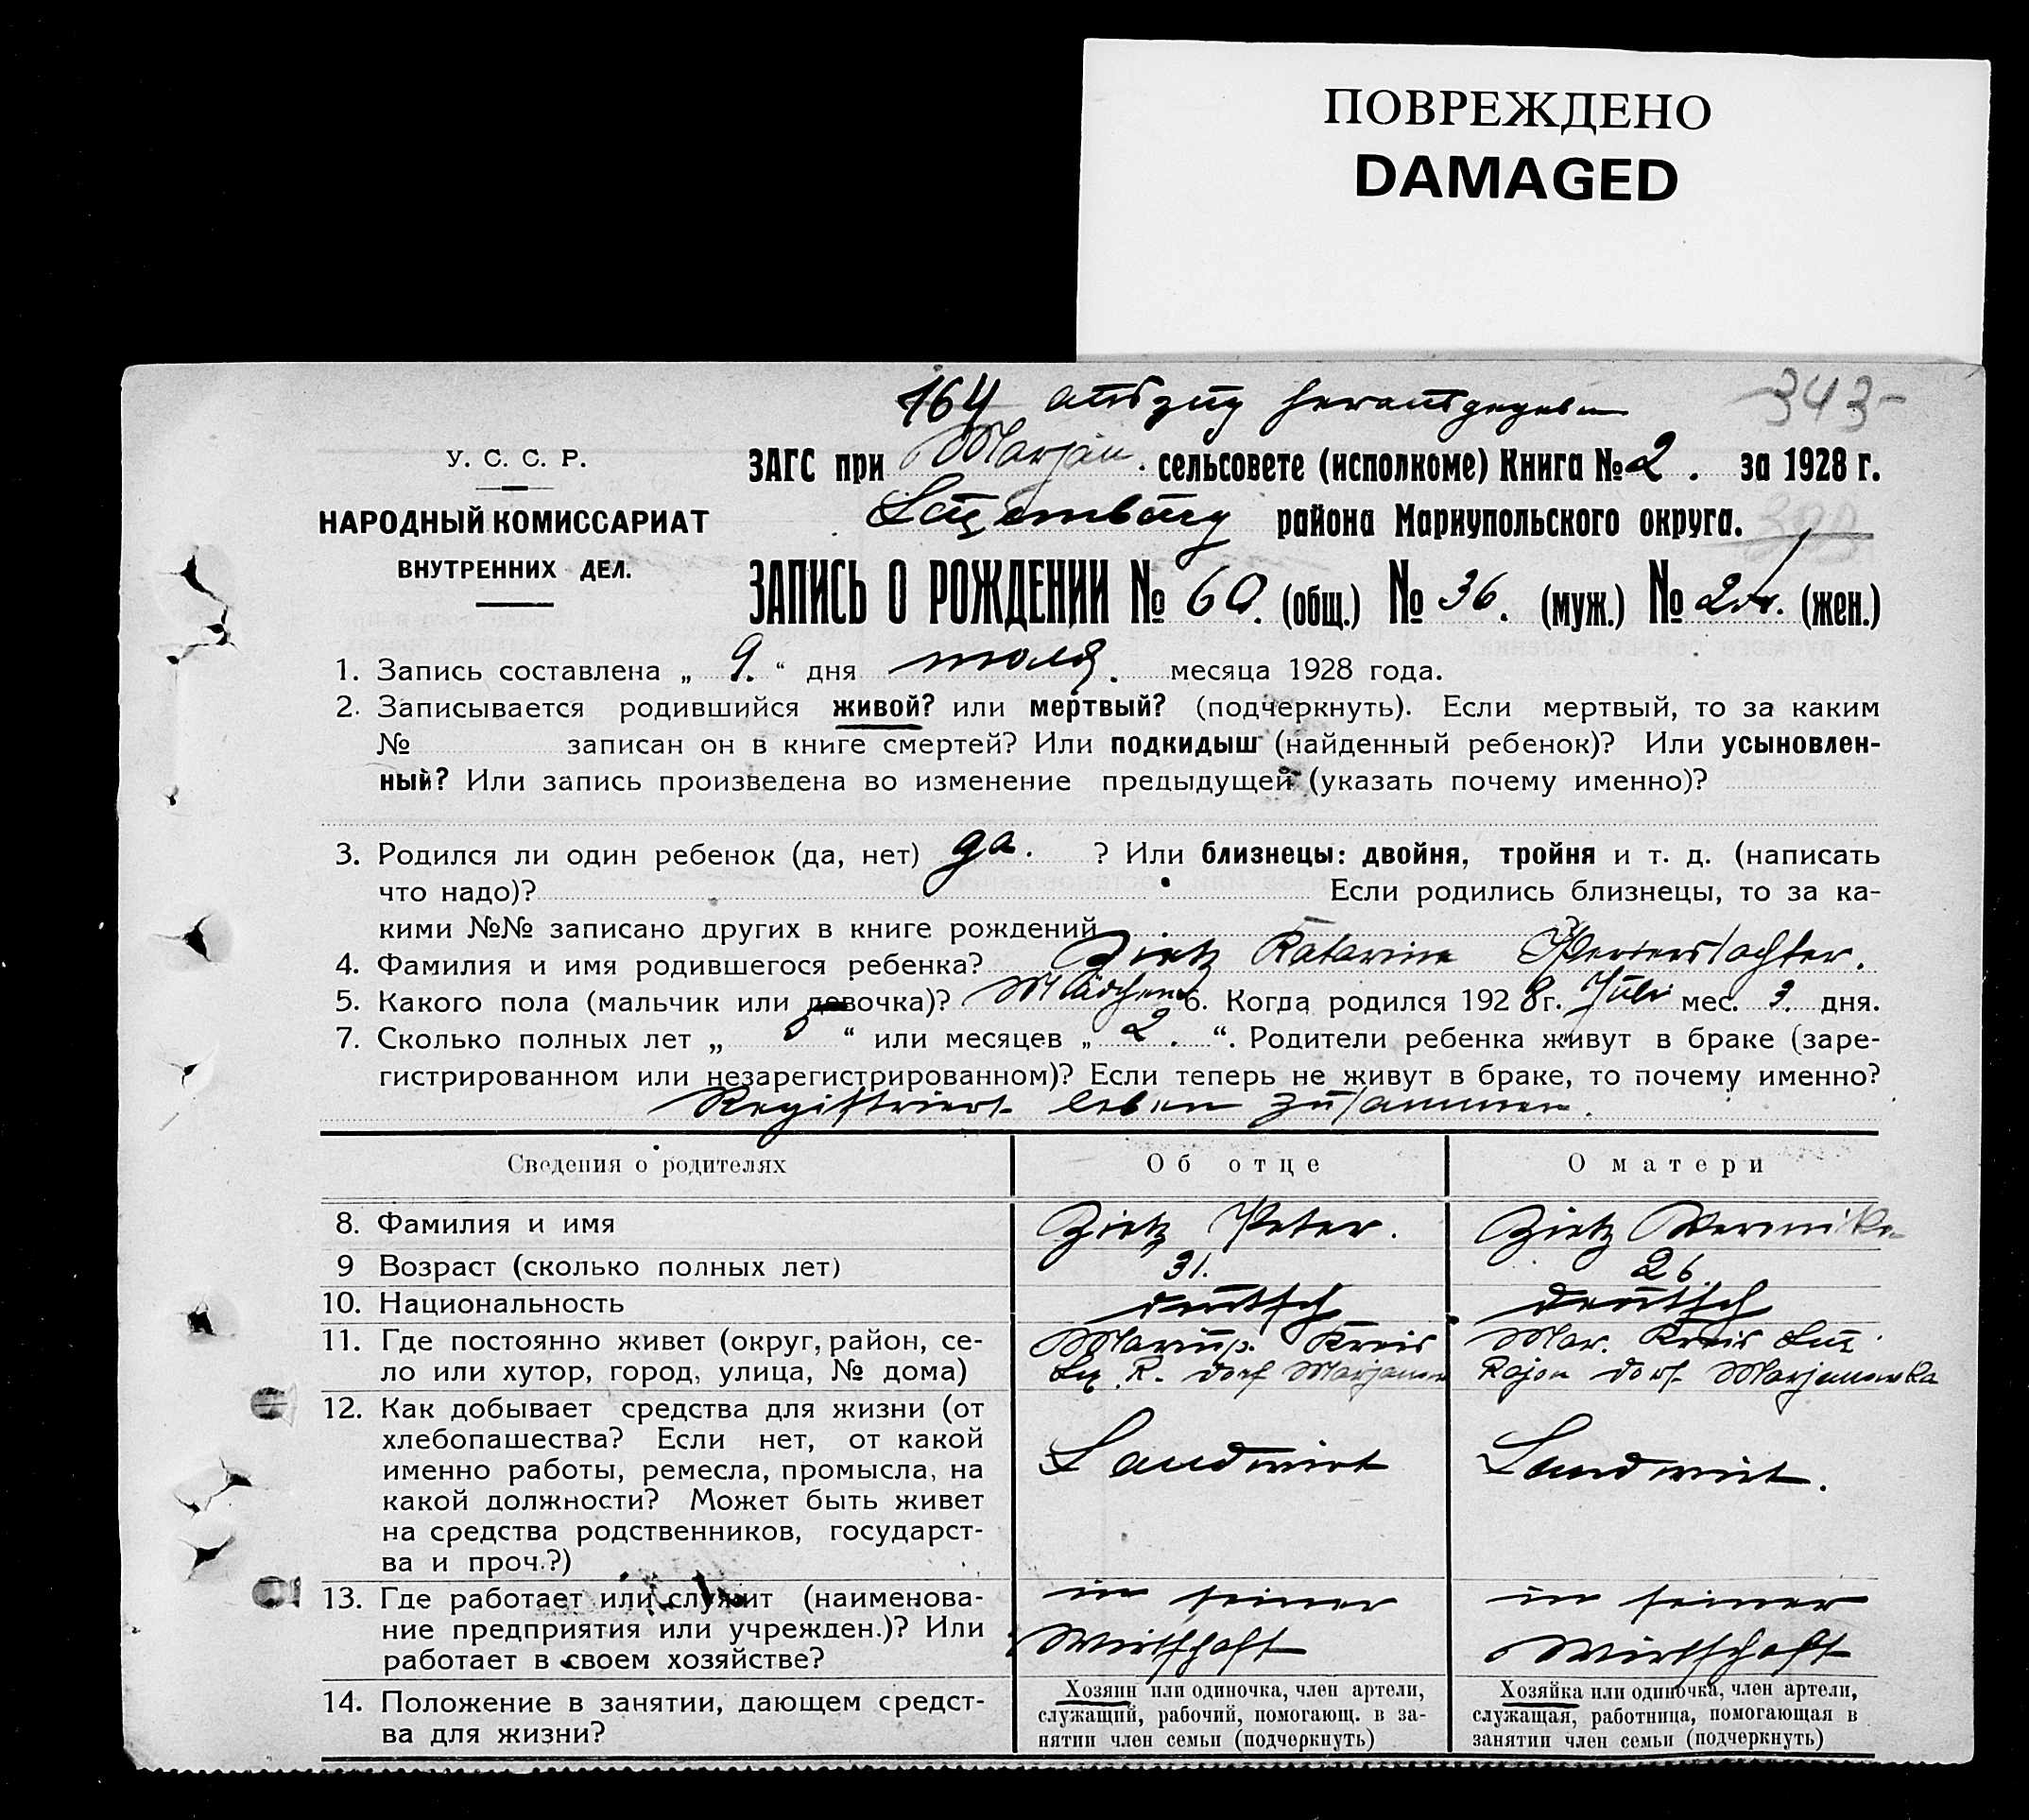 ПОВРЕЖДЕНО
DAMAGED
164 Auszug herausgegeben
343-
У. С. С. Р.
НАРОДНЫЙ КОМИССАРИАТ
ВНУТРЕННИХ ДЕЛ.
ЗАГС при Marjan. сельсовете (исполкоме) Книга № 2. за 1928 г.
района Мариупольского округа.
ЗАПИСЬ О РОЖДЕНИИ № 60. (общ.) № 36. (муж.) № (жен.)
1. Запись составлена „ 9. “ дня июля. месяца 1928 года.
2. Записывается родившийся живой? или мертвый? (подчеркнуть). Если мертвый, то за каким
№ записан он в книге смертей? Или подкидыш (найденный ребенок)? Или усыновлен-
ный? Или запись произведена во изменение предыдущей (указать почему именно)?
3. Родился ли один ребенок (да, нет) да. ? Или близнецы: двойня, тройня и т. д. (написать
что надо)? Если родились близнецы, то за ка-
кими №№ записано других в книге рождений
4. Фамилия и имя родившегося ребенка? Zietz Katarina
5. Какого пола (мальчик или девочка)? Mädchen 6. Когда родился 1928 г. Juli мес. 3. дня.
7. Сколько полных лет „ 5 “ или месяцев „ 2. “. Родители ребенка живут в браке (заре-
гистрированном или незарегистрированном)? Если теперь не живут в браке, то почему именно?
Registriert leben zusammen.
Сведения о родителях
Об отце
О матери
8. Фамилия и имя
Zietz Peter.
Zietz Weronika
9 Возраст (сколько полных лет)
31.
26
10. Национальность
deutsch
deutsch
11. Где постоянно живет (округ, район, се-
ло или хутор, город, улица, № дома)
Mariup. Kreis
Lux. R. Dorf Marjanow
Mar. Kreis Lux.
Rajon Dorf Marjanowka
12. Как добывает средства для жизни (от
хлебопашества? Если нет, от какой
именно работы, ремесла, промысла, на
какой должности? Может быть живет
на средства родственников, государст-
ва и проч.?)
Landwirt
Landwirt.
13. Где работает или служит (наименова-
ние предприятия или учрежден.)? Или
работает в своем хозяйстве?
in seiner
Wirtschaft
in seiner
Wirtschaft
14. Положение в занятии, дающем средст-
ва для жизни?
Хозяин или одиночка, член артели,
служащий, рабочий, помогающ. в за-
нятии член семьи (подчеркнуть)
Хозяйка или одиночка, член артели,
служащая, работница, помогающая в
занятии член семьи (подчеркнуть)